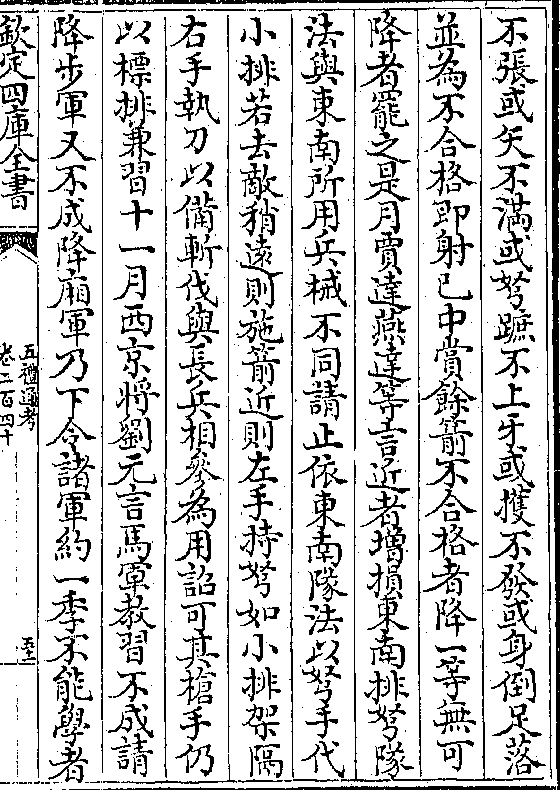 不張或矢不滿或弩蹠不上牙或擭不發或身倒足落
並為不合格即射已中賞餘箭不合格者降一等無可
降者罷之是月賈逵燕達等言近者增損東南排弩隊
法與東南所用兵械不同請止依東南隊法以弩手代
小排若去敵稍遠則施箭近則左手持弩如小排架隔
右手執刀以備斬伐與長兵相參為用詔可其槍手仍
以標排兼習十一月西京將劉元言馬軍教習不成請
降步軍又不成降廂軍乃下令諸軍約一季不能學者
欽定四庫全書
五禮通考
卷二百四十